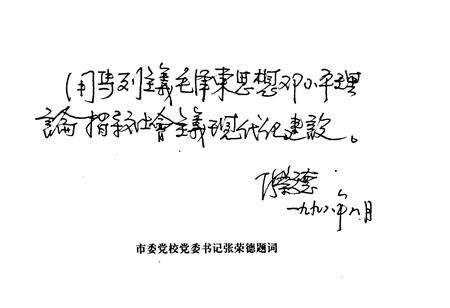 用马列主義毛泽東思想邓小平理
論指導社會主義現代化建設。
张荣德
一九九八年八月
市委党校党委书记张荣德题词